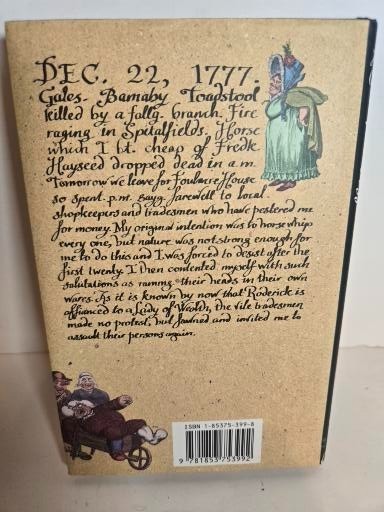 DEC. 22, 1777.
Gales. Barnaby Toadstool
killed by a fallg. branch. Fire
raging in Spitalfields. Horse
which I bt. cheap of Fredk.
Hayseed dropped dead in a.m.
Tomorrow we leave for Foulmire House
so spent p.m. sayg. farewell to local
shopkeepers and tradesmen who have pestered me
for money. My original intention was to horse whip
every one, but nature was not strong enough for
me to do this and I was forced to desist after the
first twenty. I then contented myself with such
salutations as ramming their heads in their own
wares. As it is known by now that Roderick is
affianced to a Lady of Wealth, the vile tradesmen
made no protest, but fawned and invited me to
assault their persons again.
ISBN 1-85375-399-8
9 781853 753992